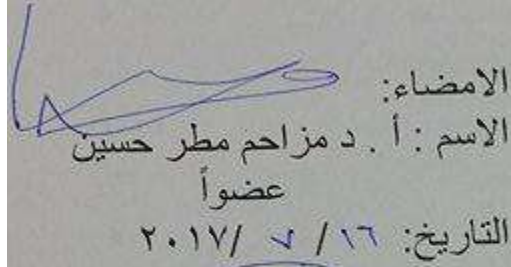 الامضاء:
الاسم : أ . د مزاحم مطر حسين
عضواً
التاريخ: ١٦ / ٧ /٢٠١٧